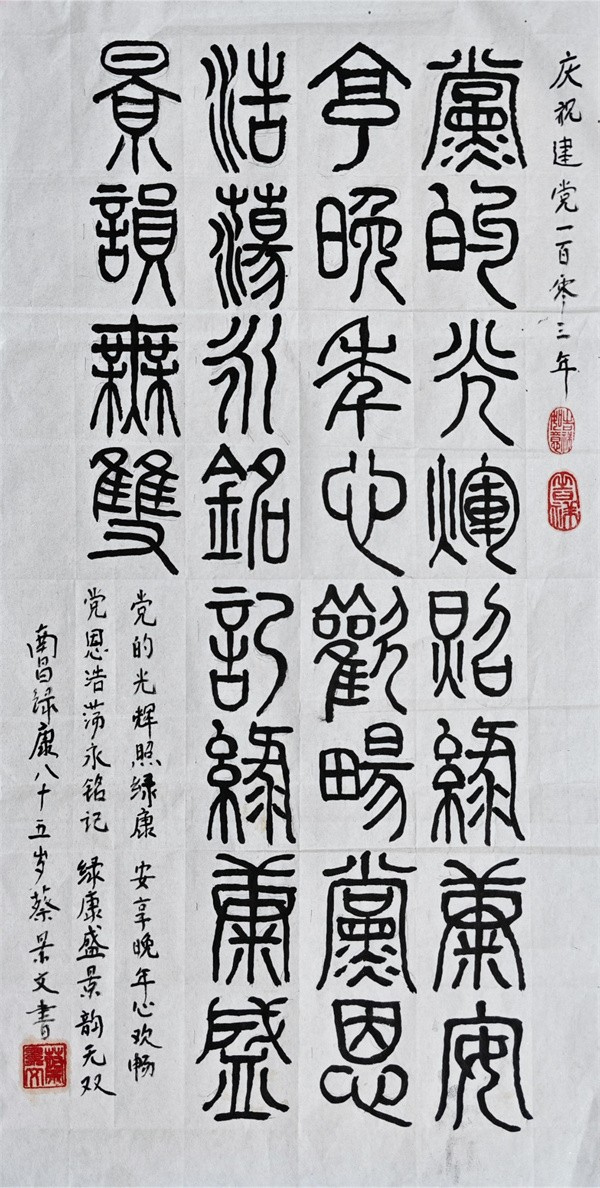 庆祝建党一百零三年
黨的光煇照綠康安
享晚年心歡暢黨恩
浩蕩永銘記綠康盛
景韻無雙
党的光辉照绿康 安享晚年心欢畅
党恩浩荡永铭记 绿康盛景韵无双
南昌绿康八十五岁蔡景文書